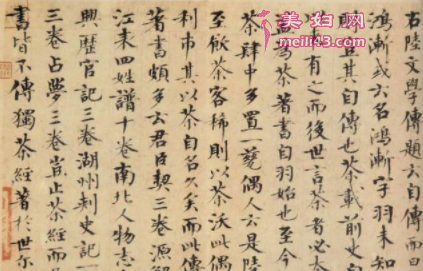 右陸文學傳題云自傳而曰
鴻漸或云名鴻漸字羽未知
豈其自傳也茶載前史
来有之而後世言茶者必本
為茶著書自羽始也至今
茶肆中多置一甆偶人云是陸
至飲茶客稀則以茶沃此偶
利市其以茶自名久矣而此傳
著書頗多云君臣契三卷源解
江表四姓譜十卷南北人物志
興歷官記三卷湖州刺史記一
三卷占夢三卷豈止茶經而
書皆不傳獨茶經著於世尔
美妇网